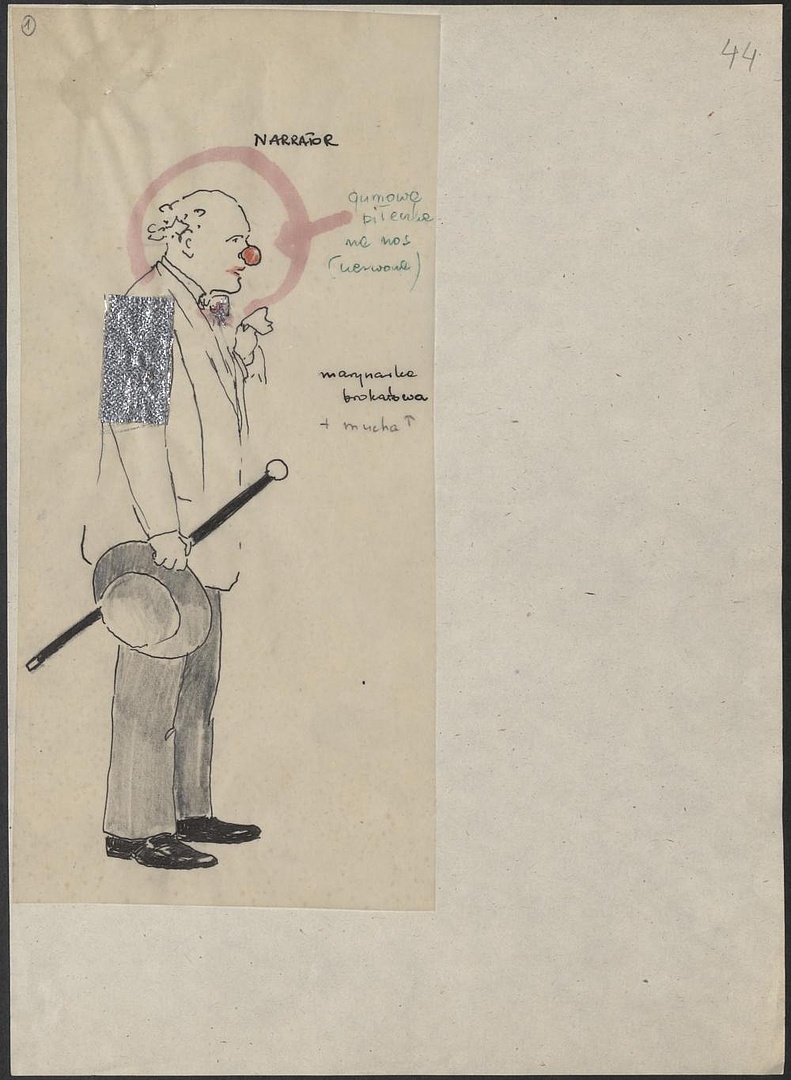 1
44
NARRATOR
gumową
piłeczkę
na nos
(czerwoną)
marynarka
brokatowa
+ mucha ↑